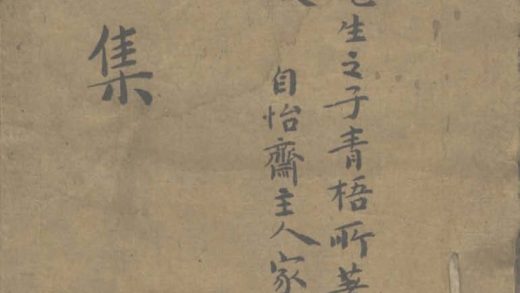 生之子青梧所著
自怡齋主人家
集